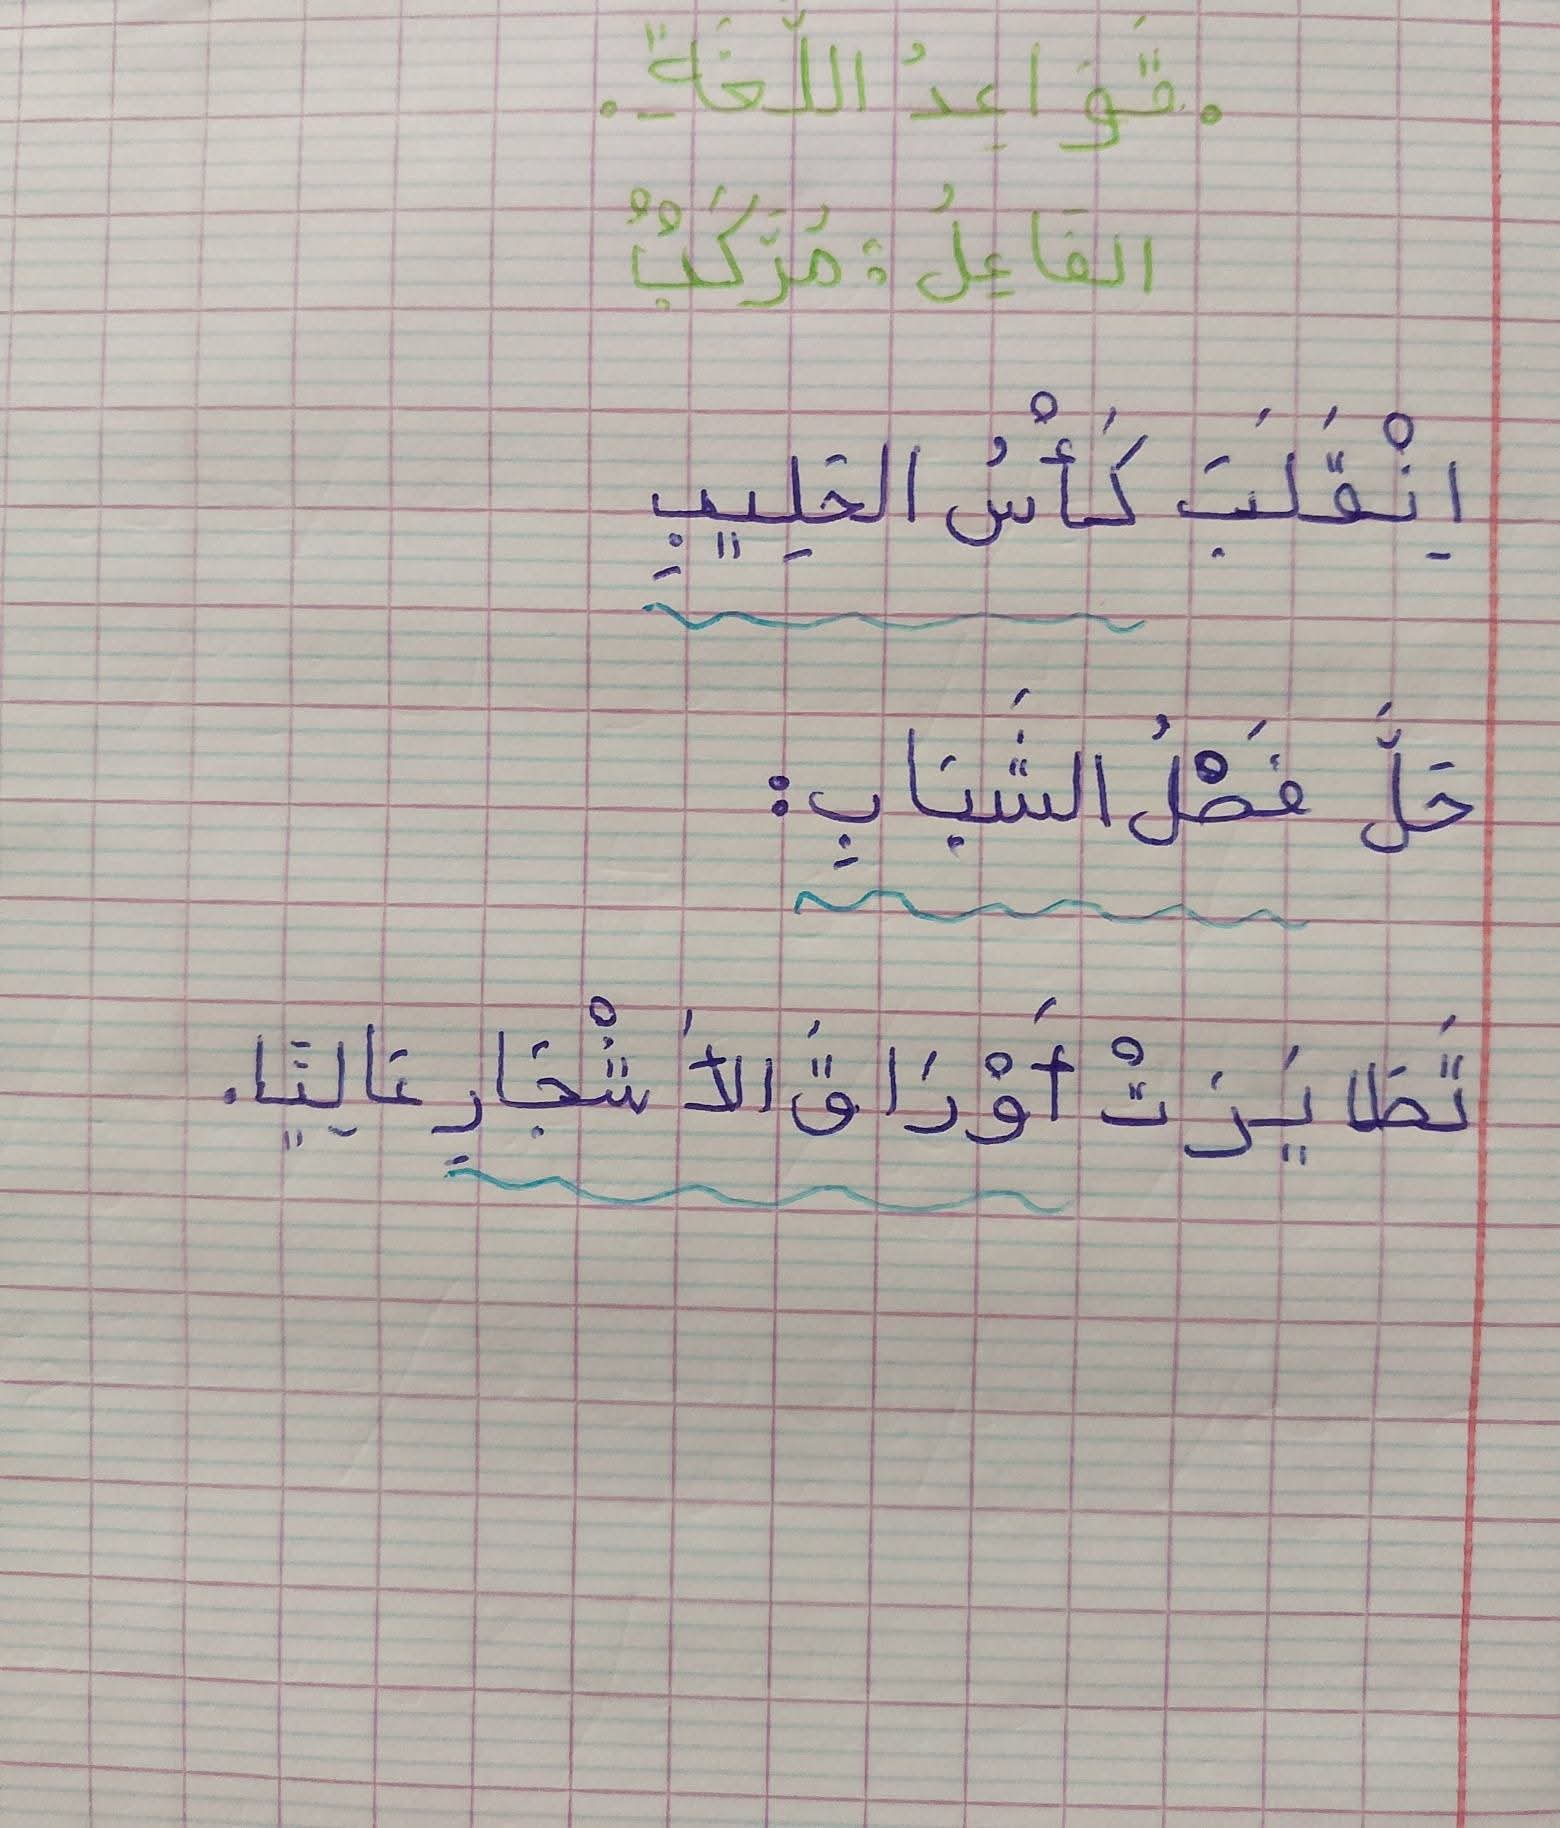 . قَوَاعِدُ اللّغَةِ .
الفَاعِلُ : مُرَّكَبٌ
اِنْقَلَبَ كَأْسُ الحَلِيبِ
حَلَّ فَصْلُ الشَّبَابِ :
تَطَايَرَتْ أَوْرَاقَ الأَشْجَارِ عَالِيَا .